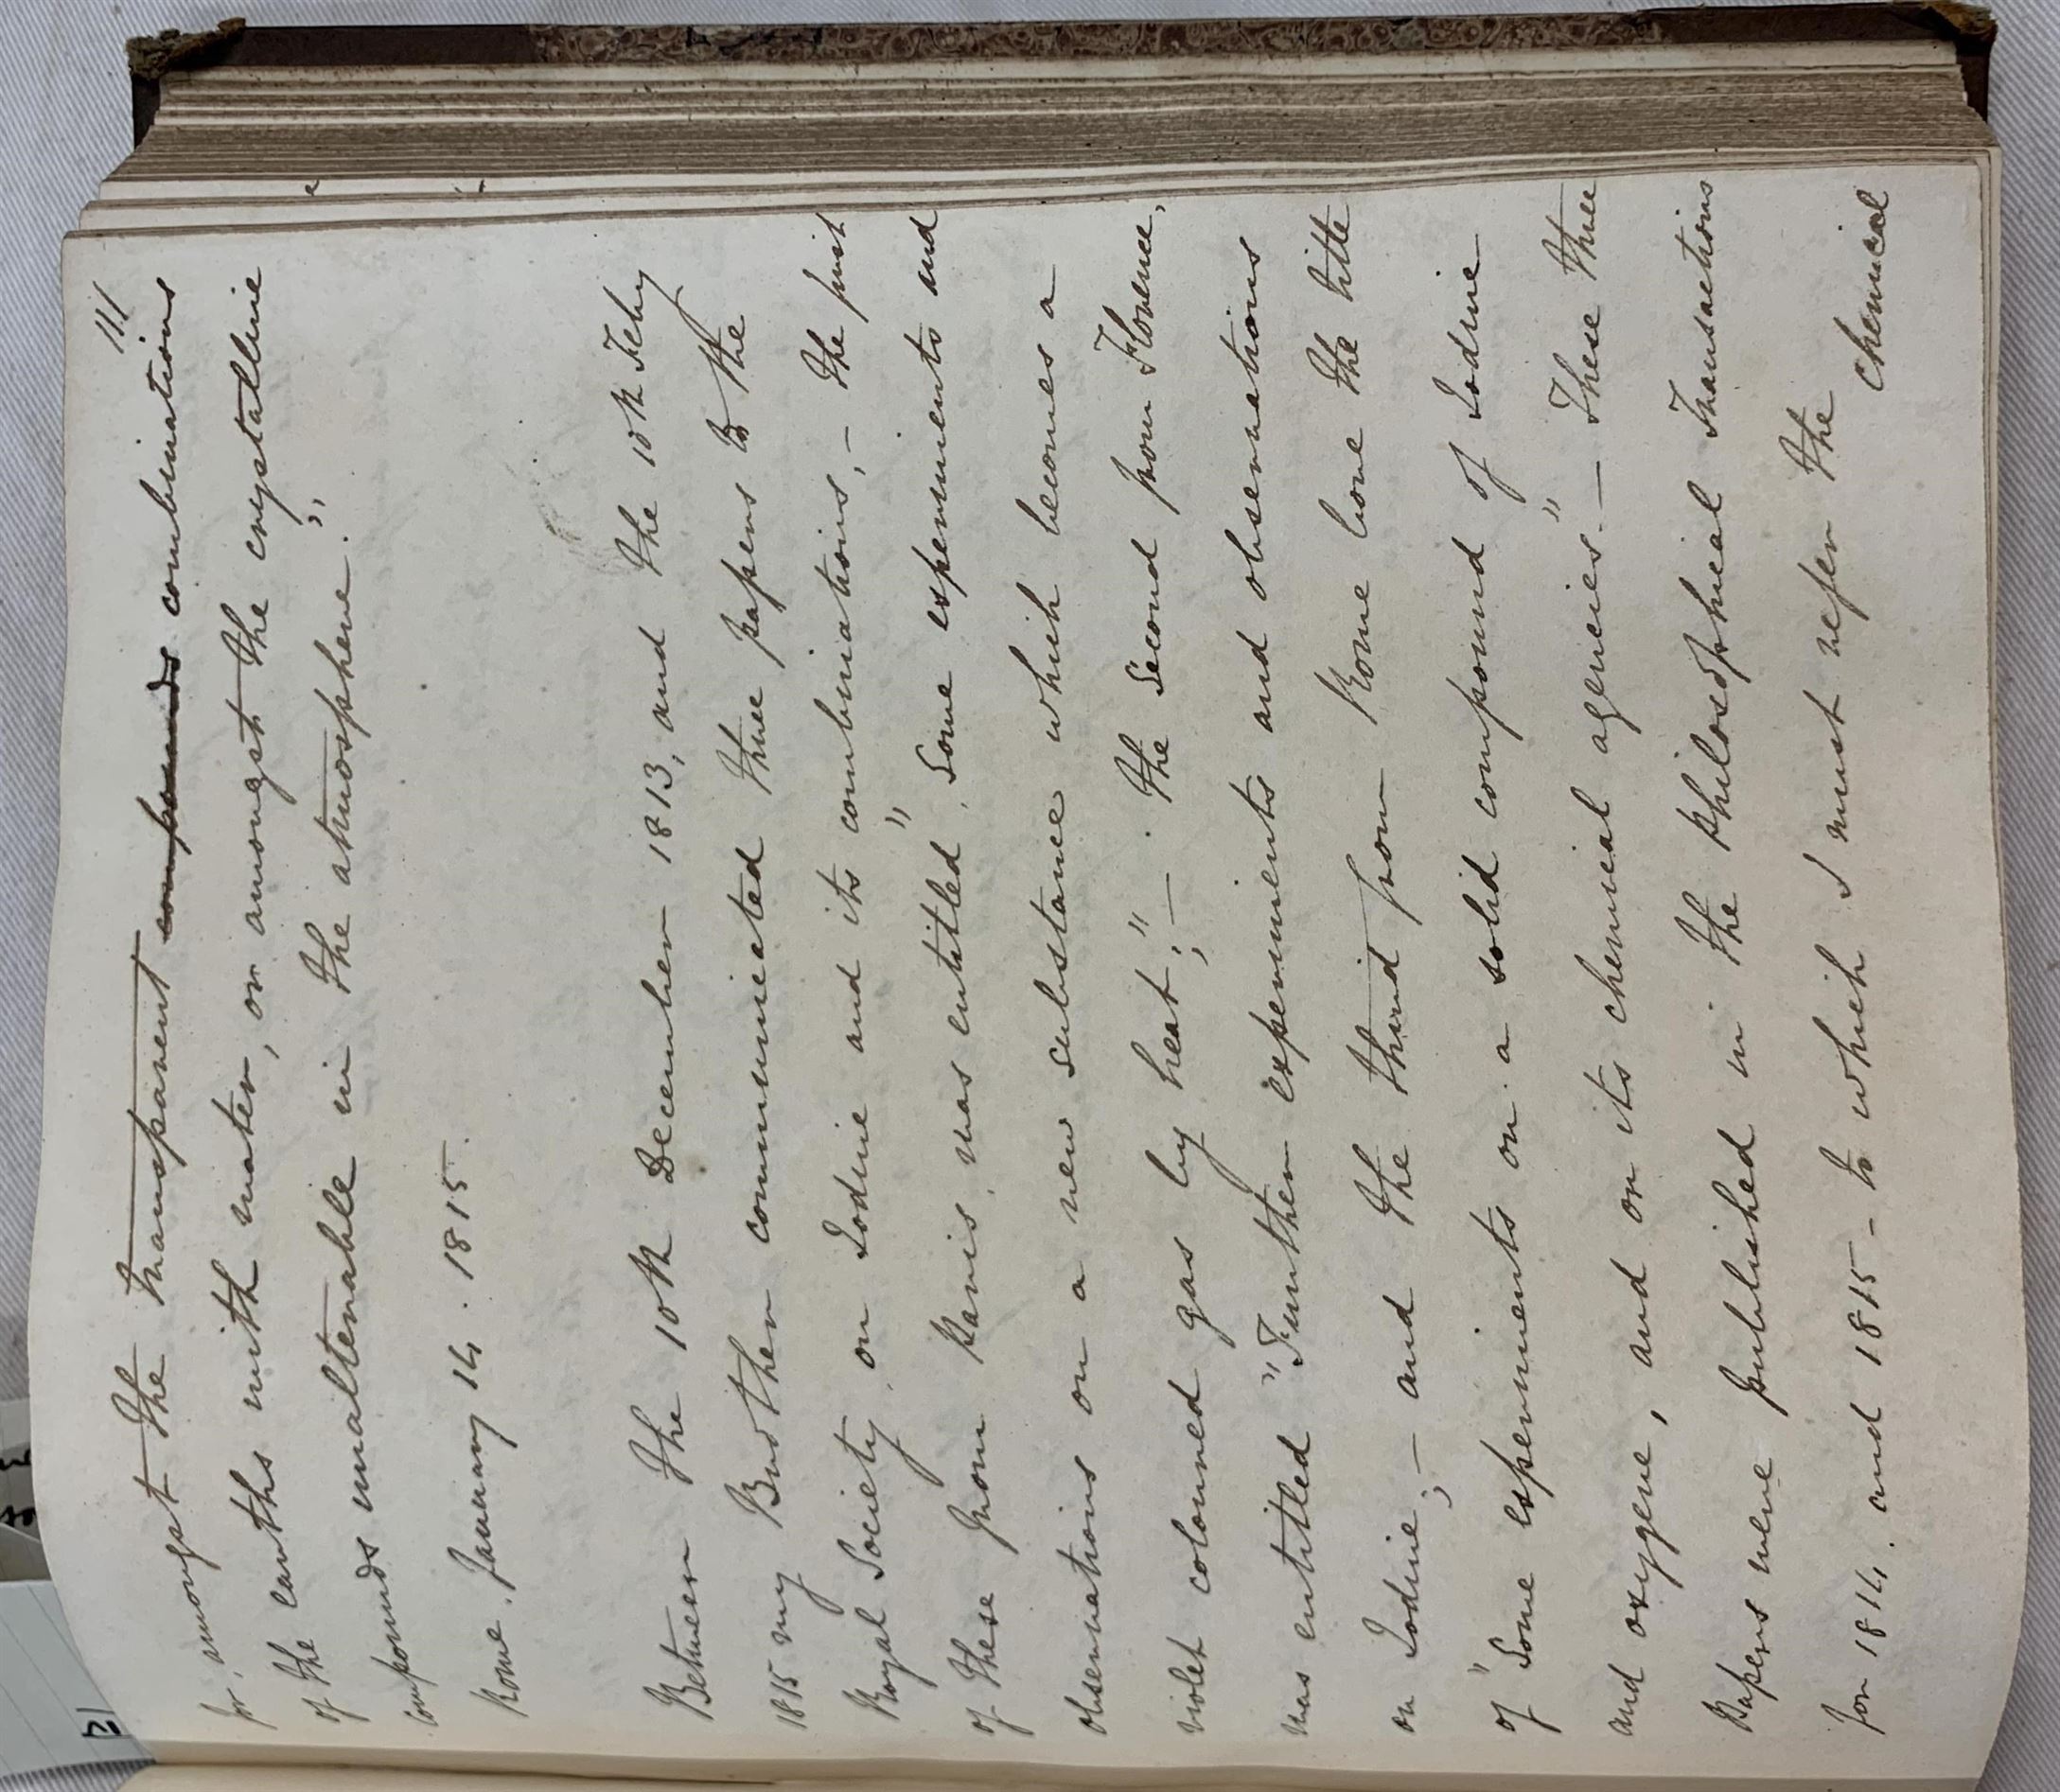 111
for, amongst the transparent compounds combinations
of the earths with water, or amongst the crystalline
compounds unalterable in the atmosphere.",
Rome. January 14. 1815.
Between the 10th December 1813, and the 10th Feby
1815 my Brother communicated three papers to the
Royal Society on Iodine and its combinations, – the first
of these from Paris, was entitled, "Some experiments and
observations on a new substance which becomes a
violet coloured gas by heat"; – . the second from Florence,
was entitled "Further experiments and observations
on Iodine; – and the third from Rome bore the title
of "Some experiments on a solid compound of Iodine
and oxygene, and on its chemical agencies." – These three
Papers were published in the Philosophical Transactions
for 1814. and 1815 – to which I must refer the
chemical